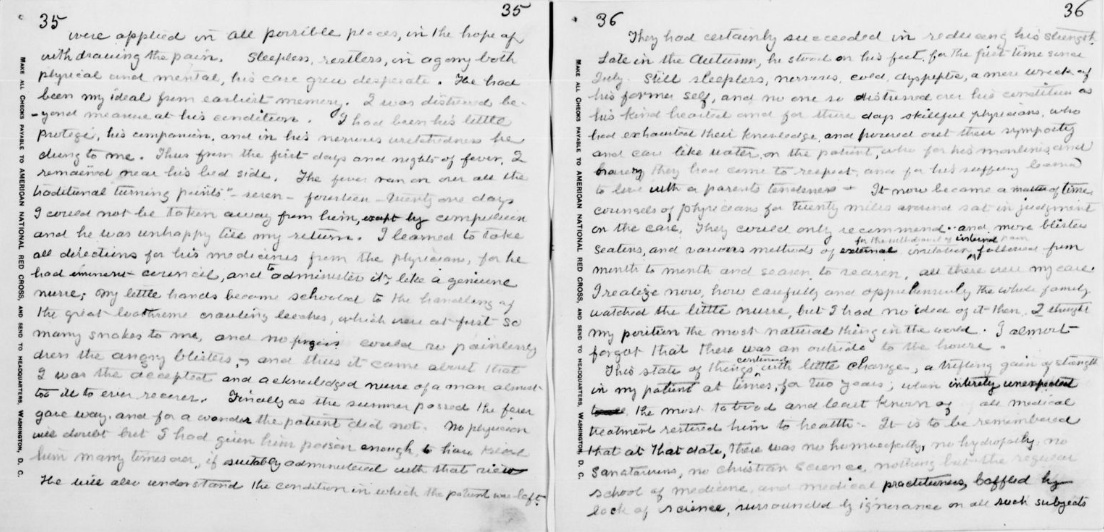 35 35
were applied in all possible places, in the hope of
withdrawing the pain. Sleepless, restless, in agony both
physical and mental, his case grew desperate. He had
been my ideal from earliest memory. I was distressed be-
-yond measure at his condition. I had been his little
protegé, his companion, and in his nervous wretchedness he
clung to me. Thus from the first days and nights of fever, I
remained near his bed side. The fever ran on over all the
traditional turning points" - seven - fourteen - twenty one days
I could not be taken away from him, except by compulsion
and he was unhappy till my return. I learned to take
all directions for his medicines from the physicians, for he
had eminent council, and to administer it, like a genuine
nurse; my little hands became schooled to the handling of
the great loathsome crawling leeches, which were at first so
many snakes to me, and no fingers could so painlessly
dress the angry blisters, and thus it came about that
I was the accepted and acknowledged nurse of a man almost
too ill to ever recover. Finally as the summer passed the fever
gave way. and for a wonder the patient did not. No physician
will doubt but I had given him poison enough, to have killed
him many times over, if suitably administered with that view
He will also understand the condition in which the patient was left.
MAKE ALL CHECKS PAYABLE TO AMERICAN NATIONAL RED CROSS, AND SEND TO HEADQUARTERS, WASHINGTON, D. C.
36 36
They had certainly succeeded in reducing his strength.
Late in the Autumn, he stood on his feet, for the first time since
July. Still sleepless, nervous, cold, dyspeptic, a mere wreck of
his former self, and no one so distressed over his condition as
his kind hearted and for those days skillful physicians, who
had exhausted their knowledge, and poured out their sympathy
and care like water, on the patient, who for his manliness and
bravery they had come to respect, and for his suffering learned
to love with a parents tenderness. It now became a matter of time
counsels of physicians for twenty miles around sat in judgment
on the case, They could only recommend - and more blisters
for the withdrawal of internal pain
Seatons, and various methods of external irritation, followed from
month to month and season to season, all these were my care
I realize now, how carefully and apprehensively the whole family
watched the little nurse, but I had no idea of it then. I thought
my position the most natural thing in the world. I almost
forgot that there was an outside to the house.
continuing
This state of things, with little changes, a trifling gain of strength
in my patient at times, for two years; when entirely unexpected
the most tabooed and least known of all medical
treatment restored him to health. It is to be remembered
that at that date, there was no homeopathy, no hydropathy, no
Sanatariums, no christian science, nothing but the regular
school of medicine, and medical practitioners, baffled by
lack of science, surrounded by ignorance on all such subjects
MAKE ALL CHECKS PAYABLE TO AMERICAN NATIONAL RED CROSS, AND SEND TO HEADQUARTERS, WASHINGTON, D. C.